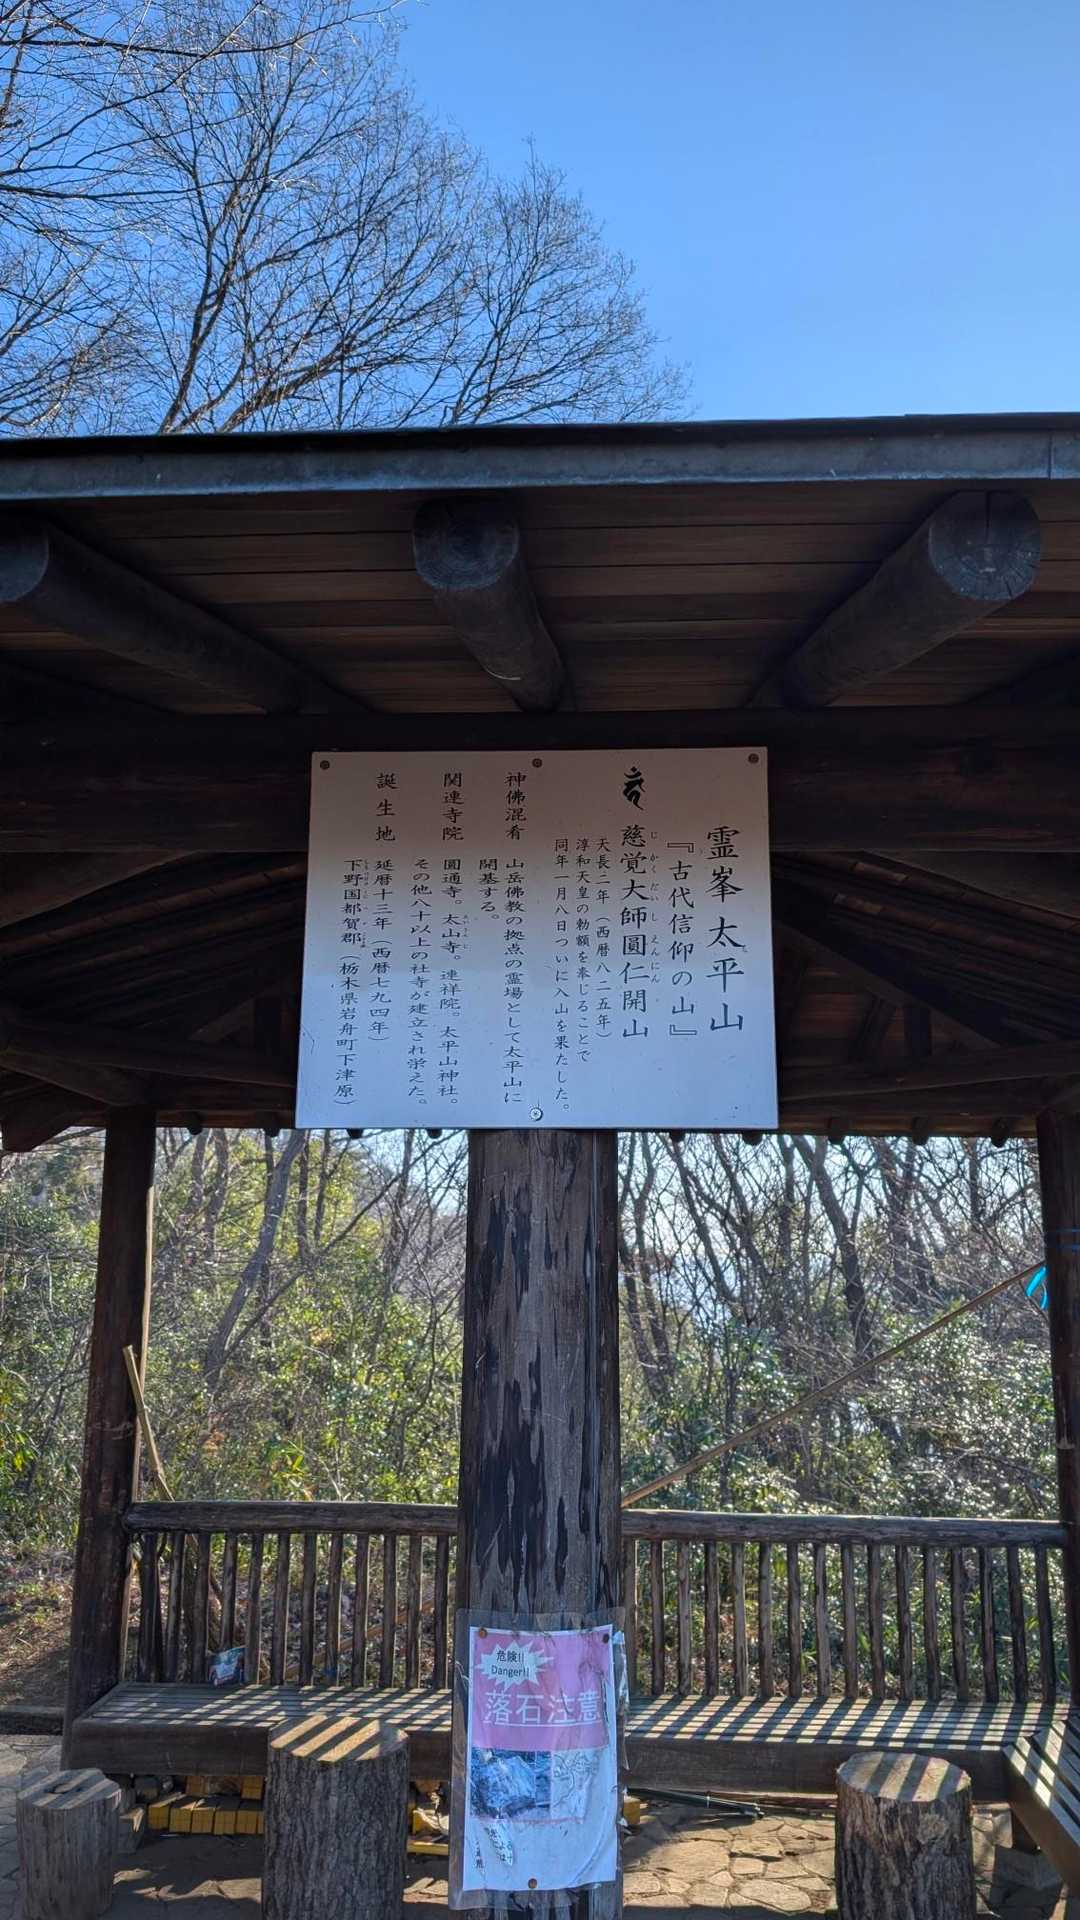 霊峯 太平山
『古代信仰の山』
慈覚大師圓仁開山
じかくだいし えんにん
天長二年（西暦八二五年）
淳和天皇の勅額を奉じることで
同年一月八日ついに入山を果たした。
神佛混肴
山岳佛教の拠点の霊場として太平山に
開基する。
関連寺院
圓通寺。太山寺。連祥院。太平山神社。
その他八十以上の社寺が建立され栄えた。
誕生地
延暦十三年（西暦七九四年）
下野国都賀郡（栃木県岩舟町下津原）
危険!!
Danger!!
落石注意